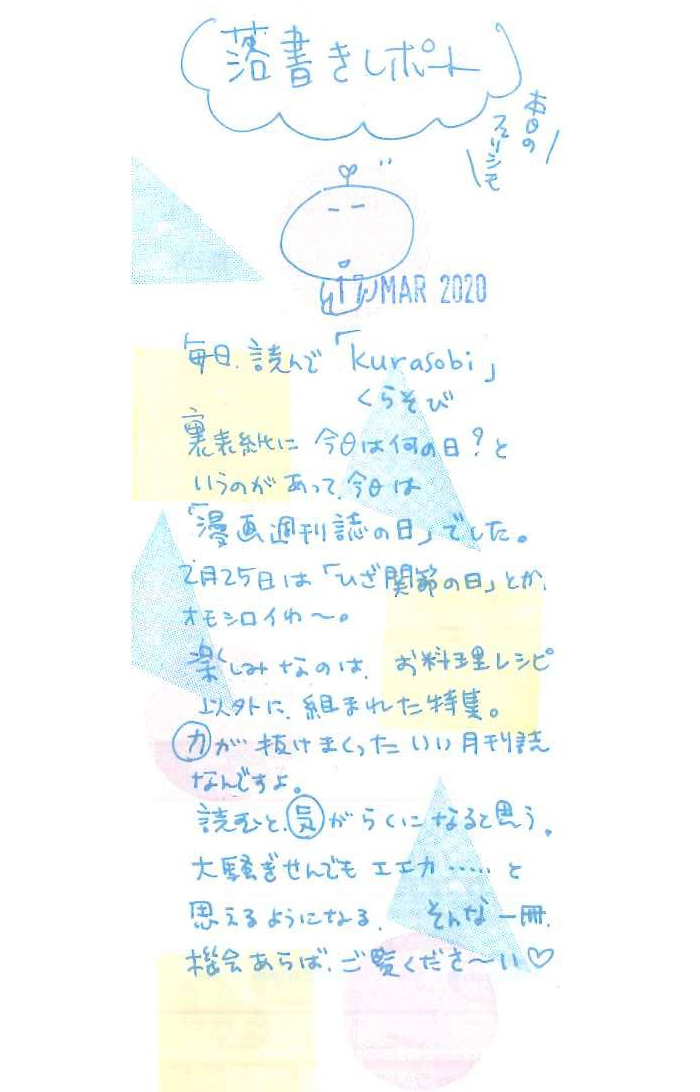 落書きレポート
本日の
フリシモ
17 MAR 2020
毎日、読んで「kurasobi」
くらそび
裏表紙に 今日は何の日？と
いうのがあって、今日は
「漫画週刊誌の日」でした。
2月25日は「ひざ関節の日」とか、
オモシロイわ〜。
楽しみなのは、お料理レシピ
以外に、組まれた特集。
力が 抜けまくった いい 月刊読
なんですよ。
読むと、気がらくになると思う。
大騒ぎせんでも エエカ……と
思えるようになる、そんな一冊、
機会あらば、ご覧くださ〜い♡